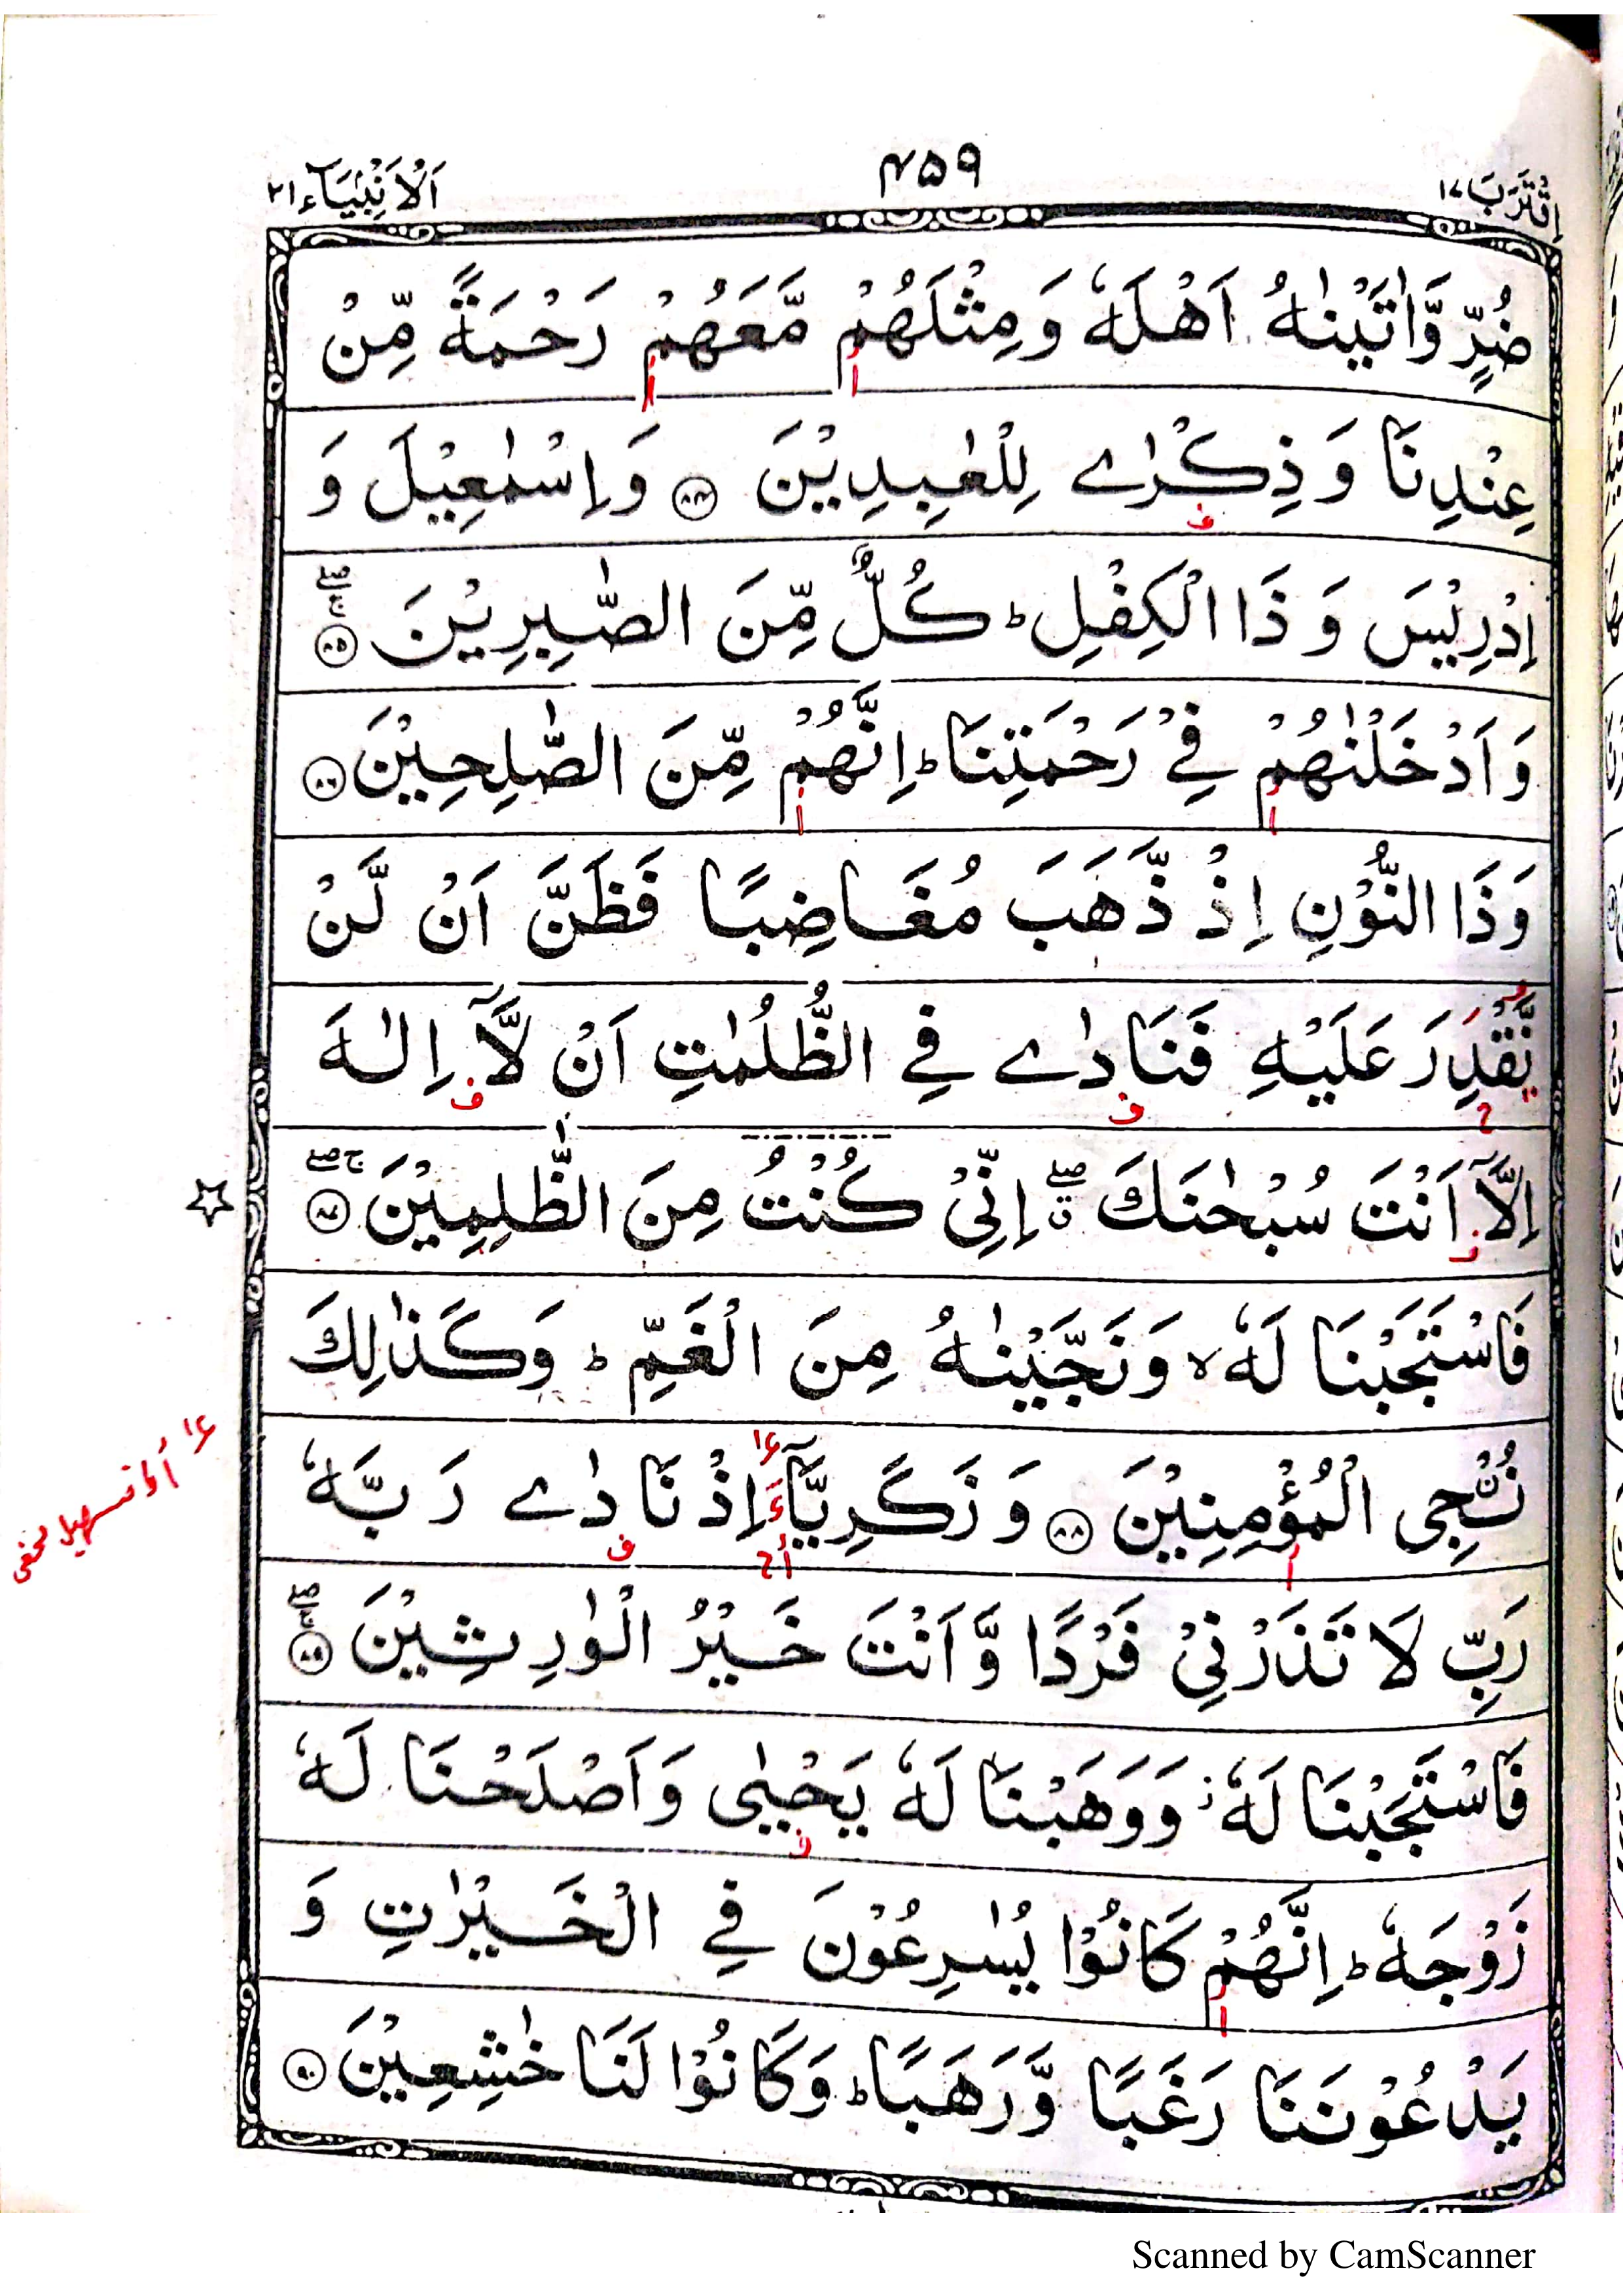 اِقْتَرَبَ ١٧ ۴۵۹ اَلْاَنْۢبِيَآء ٢١
ضُرٍّ وَّاٰتَيْنٰهُ اَهْلَهٗ وَمِثْلَهُمْ مَّعَهُمْ رَحْمَةً مِّنْ
عِنْدِنَا وَذِكْرٰے لِلْعٰبِدِيْنَ ﴿۸۴﴾ وَاِسْمٰعِيْلَ وَ
اِدْرِيْسَ وَذَا الْكِفْلِ ؕ كُلٌّ مِّنَ الصّٰبِرِيْنَ ﴿۸۵﴾ ج صلے
وَاَدْخَلْنٰهُمْ فِيْ رَحْمَتِنَا ؕ اِنَّهُمْ مِّنَ الصّٰلِحِيْنَ ﴿۸۶﴾
وَذَا النُّوْنِ اِذْ ذَّهَبَ مُغَاضِبًا فَظَنَّ اَنْ لَّنْ
نَّقْدِرَ عَلَيْهِ فَنَادٰے فِي الظُّلُمٰتِ اَنْ لَّاۤ اِلٰهَ
اِلَّاۤ اَنْتَ سُبْحٰنَكَ ق صلے اِنِّيْ كُنْتُ مِنَ الظّٰلِمِيْنَ ﴿۸۷﴾ ج صلے
فَاسْتَجَبْنَا لَهٗ ۙ وَنَجَّيْنٰهُ مِنَ الْغَمِّ ؕ وَكَذٰلِكَ
نُـنْۨجِي الْمُؤْمِنِيْنَ ﴿۸۸﴾ وَزَكَرِيَّاۤءَ اِذْ نَادٰے رَبَّهٗ
رَبِّ لَا تَذَرْنِيْ فَرْدًا وَّاَنْتَ خَيْرُ الْوٰرِثِيْنَ ﴿۸۹﴾ ج صلے
فَاسْتَجَبْنَا لَهٗ ز وَوَهَبْنَا لَهٗ يَحْيٰى وَاَصْلَحْنَا لَهٗ
زَوْجَهٗ ؕ اِنَّهُمْ كَانُوْا يُسٰرِعُوْنَ فِي الْخَيْرٰتِ وَ
يَدْعُوْنَنَا رَغَبًا وَّرَهَبًا ؕ وَكَانُوْا لَنَا خٰشِعِيْنَ ﴿۹۰﴾
Scanned by CamScanner